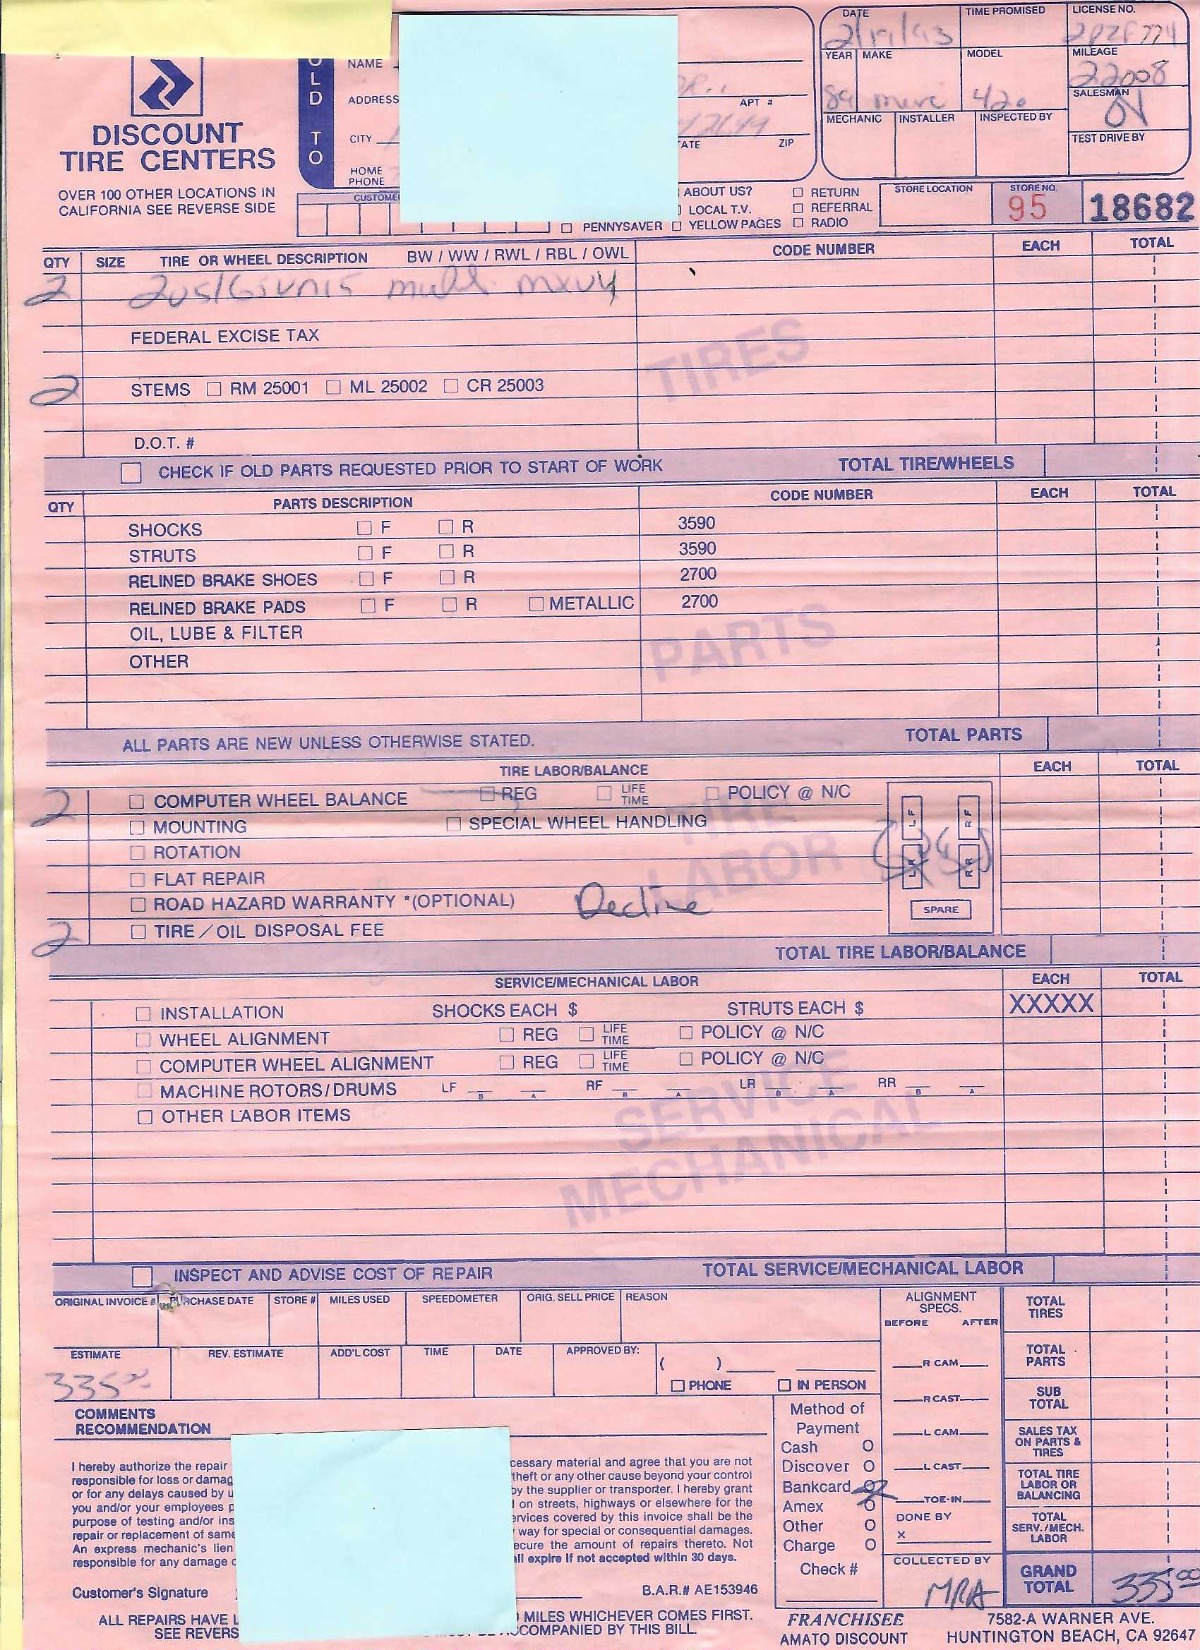 DISCOUNT
TIRE CENTERS
OVER 100 OTHER LOCATIONS IN
CALIFORNIA SEE REVERSE SIDE
OLD TO
NAME
ADDRESS
APT #
CITY
ATE ZIP
HOME
PHONE
CUSTOME
DATE TIME PROMISED LICENSE NO.
YEAR MAKE MODEL MILEAGE
22008
89 merc 420 SALESMAN
MECHANIC INSTALLER INSPECTED BY
TEST DRIVE BY
ABOUT US? RETURN
LOCAL T.V. REFERRAL
PENNYSAVER YELLOW PAGES RADIO
STORE LOCATION STORE NO.
95 18682
QTY SIZE TIRE OR WHEEL DESCRIPTION BW / WW / RWL / RBL / OWL CODE NUMBER EACH TOTAL
2 205/65VR15 mxv4
FEDERAL EXCISE TAX
2 STEMS RM 25001 ML 25002 CR 25003
TIRES
D.O.T. #
CHECK IF OLD PARTS REQUESTED PRIOR TO START OF WORK TOTAL TIRE/WHEELS
QTY PARTS DESCRIPTION CODE NUMBER EACH TOTAL
SHOCKS F R 3590
STRUTS F R 3590
RELINED BRAKE SHOES F R 2700
RELINED BRAKE PADS F R METALLIC 2700
OIL, LUBE & FILTER
OTHER
PARTS
ALL PARTS ARE NEW UNLESS OTHERWISE STATED. TOTAL PARTS
TIRE LABOR/BALANCE EACH TOTAL
2 COMPUTER WHEEL BALANCE REG LIFE TIME POLICY @ N/C
MOUNTING SPECIAL WHEEL HANDLING
ROTATION
FLAT REPAIR
ROAD HAZARD WARRANTY *(OPTIONAL) Decline
2 TIRE / OIL DISPOSAL FEE
TIRE
LABOR
LF RF
LR RR
SPARE
TOTAL TIRE LABOR/BALANCE
SERVICE/MECHANICAL LABOR EACH TOTAL
INSTALLATION SHOCKS EACH $ STRUTS EACH $ XXXXX
WHEEL ALIGNMENT REG LIFE TIME POLICY @ N/C
COMPUTER WHEEL ALIGNMENT REG LIFE TIME POLICY @ N/C
MACHINE ROTORS/DRUMS LF B A RF B A LR B A RR B A
OTHER LABOR ITEMS
SERVICE
MECHANICAL
INSPECT AND ADVISE COST OF REPAIR TOTAL SERVICE/MECHANICAL LABOR
ORIGINAL INVOICE # PURCHASE DATE STORE # MILES USED SPEEDOMETER ORIG. SELL PRICE REASON
ESTIMATE REV. ESTIMATE ADD'L COST TIME DATE APPROVED BY: ( )
335
PHONE IN PERSON
ALIGNMENT
SPECS.
BEFORE AFTER
R CAM.
R CAST.
L CAM.
L CAST.
TOE-IN
DONE BY
X
COLLECTED BY
MRA
TOTAL
TIRES
TOTAL
PARTS
SUB
TOTAL
SALES TAX
ON PARTS &
TIRES
TOTAL TIRE
LABOR OR
BALANCING
TOTAL
SERV./MECH.
LABOR
GRAND
TOTAL 335 00
COMMENTS
RECOMMENDATION
Method of
Payment
Cash
Discover
Bankcard
Amex
Other
Charge
Check #
I hereby authorize the repair cessary material and agree that you are not
responsible for loss or damag theft or any other cause beyond your control
or for any delays caused by u by the supplier or transporter. I hereby grant
you and/or your employees p on streets, highways or elsewhere for the
purpose of testing and/or ins rvices covered by this invoice shall be the
repair or replacement of same way for special or consequential damages.
An express mechanic's lien ecure the amount of repairs thereto. Not
responsible for any damage c ll expire if not accepted within 30 days.
Customer's Signature B.A.R.# AE153946
ALL REPAIRS HAVE L MILES WHICHEVER COMES FIRST.
SEE REVERS ACCOMPANIED BY THIS BILL.
FRANCHISEE
AMATO DISCOUNT
7582-A WARNER AVE.
HUNTINGTON BEACH, CA 92647